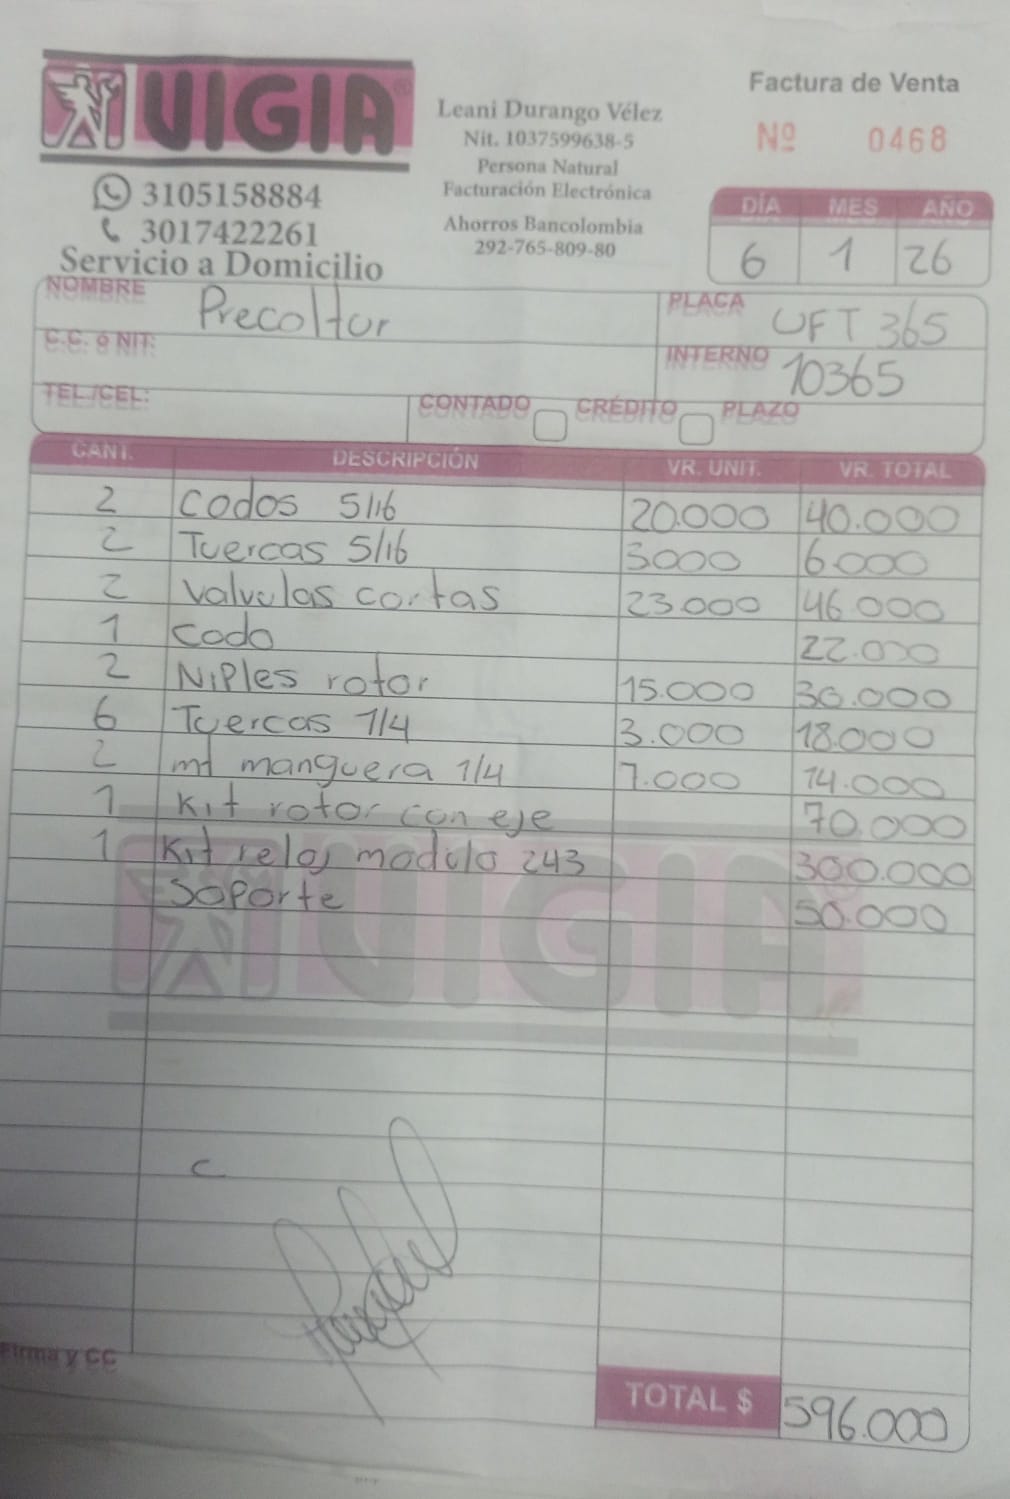 VIGIA®
3105158884
3017422261
Servicio a Domicilio
Leani Durango Vélez
Nit. 1037599638-5
Persona Natural
Facturación Electrónica
Ahorros Bancolombia
292-765-809-80
Factura de Venta
Nº 0468
DÍA MES AÑO
6 1 26
NOMBRE Precoltur
PLACA UFT 365
C.C. ó NIT:
INTERNO 10365
TEL./CEL:
CONTADO CRÉDITO PLAZO
CANT. DESCRIPCIÓN VR. UNIT. VR. TOTAL
2 Codos 5/16 20.000 40.000
2 Tuercas 5/16 3000 6.000
2 Valvulas cortas 23.000 46.000
1 Codo 22.000
2 Niples rotor 15.000 30.000
6 Tuercas 1/4 3.000 18.000
2 mt manguera 1/4 7.000 14.000
1 Kit rotor con eje 70.000
1 Kit reloj modulo 243 300.000
Soporte 50.000
VIGIA
c
Firma y CC
TOTAL $ 596.000